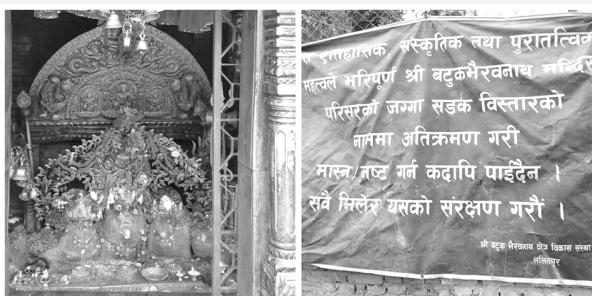 ऐतिहासिक, संस्कृतिक तथा पुरातत्विक
महत्वले भरिपूर्ण श्री बटुकभैरवनाथ मन्दिर
परिसरको जग्गा सडक विस्तारको
नाममा अतिक्रमण गरी
मास्न/नष्ट गर्न कदापि पाईदैन ।
सवै मिलेर यसको संरक्षण गरौं ।
श्री बटुक भैरवनाथ क्षेत्र विकास संस्था
ललितपुर